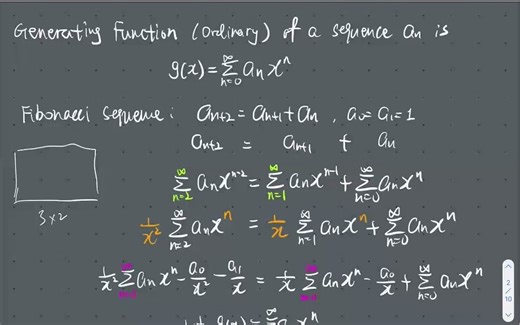 Generating Function (Ordinary) of a sequence aₙ is
g(x) = ∑_{n=0}^{∞} aₙxⁿ
Fibonacci sequence: aₙ₊₂ = aₙ₊₁ + aₙ , a₀ = a₁ = 1
aₙ₊₂ = aₙ₊₁ + aₙ
∑_{n=2}^{∞} aₙxⁿ⁻² = ∑_{n=1}^{∞} aₙxⁿ⁻¹ + ∑_{n=0}^{∞} aₙxⁿ
3×2
1/x² ∑_{n=2}^{∞} aₙxⁿ = 1/x ∑_{n=1}^{∞} aₙxⁿ + ∑_{n=0}^{∞} aₙxⁿ
1/x² ∑_{n=0}^{∞} aₙxⁿ - a₀/x² - a₁/x = 1/x ∑_{n=0}^{∞} aₙxⁿ - a₀/x + ∑_{n=0}^{∞} aₙxⁿ
2
/
10